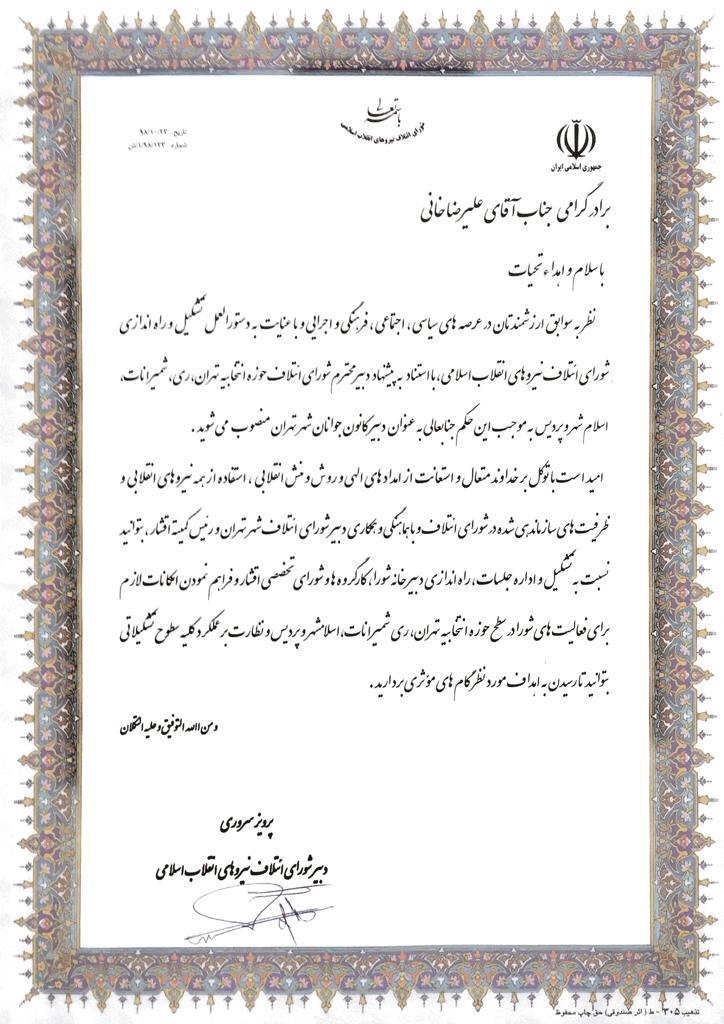 باسمه تعالی
شورای ائتلاف نیروهای انقلاب اسلامی
جمهوری اسلامی ایران
تاریخ: ۹۸/۱۰/۲۲
شماره: ۱/۹۸/۱۲۳/ش
برادر گرامی جناب آقای علیرضا خانی
با سلام و اهداء تحیات
نظر به سوابق ارزشمندتان در عرصه های سیاسی، اجتماعی، فرهنگی و اجرایی و با عنایت به دستورالعمل تشکیل و راه اندازی
شورای ائتلاف نیروهای انقلاب اسلامی، با استناد به پیشنهاد دبیر محترم شورای ائتلاف حوزه انتخابیه تهران، ری، شمیرانات،
اسلام شهر و پردیس به موجب این حکم جنابعالی به عنوان دبیر کانون جوانان شهر تهران منصوب می شوید.
امید است با توکل بر خداوند متعال و استعانت از امدادهای الهی و روش و منش انقلابی، استفاده از همه نیروهای انقلابی و
ظرفیت های سازماندهی شده در شورای ائتلاف و با هماهنگی و همکاری دبیر شورای ائتلاف شهر تهران و رئیس کمیته اقشار، بتوانید
نسبت به تشکیل و اداره جلسات، راه اندازی دبیرخانه شورا، کارگروه ها و شورای تخصصی اقشار و فراهم نمودن امکانات لازم
برای فعالیت های شورا در سطح حوزه انتخابیه تهران، ری شمیرانات، اسلامشهر و پردیس و نظارت بر عملکرد کلیه سطوح تشکیلاتی
بتوانید تا رسیدن به اهداف مورد نظر گام های مؤثری بردارید.
و من االله التوفیق و علیه التکلان
پرویز سروری
دبیر شورای ائتلاف نیروهای انقلاب اسلامی
تذهیب ۳۰۵ - ط ( اثر صندوقی) حق چاپ محفوظ